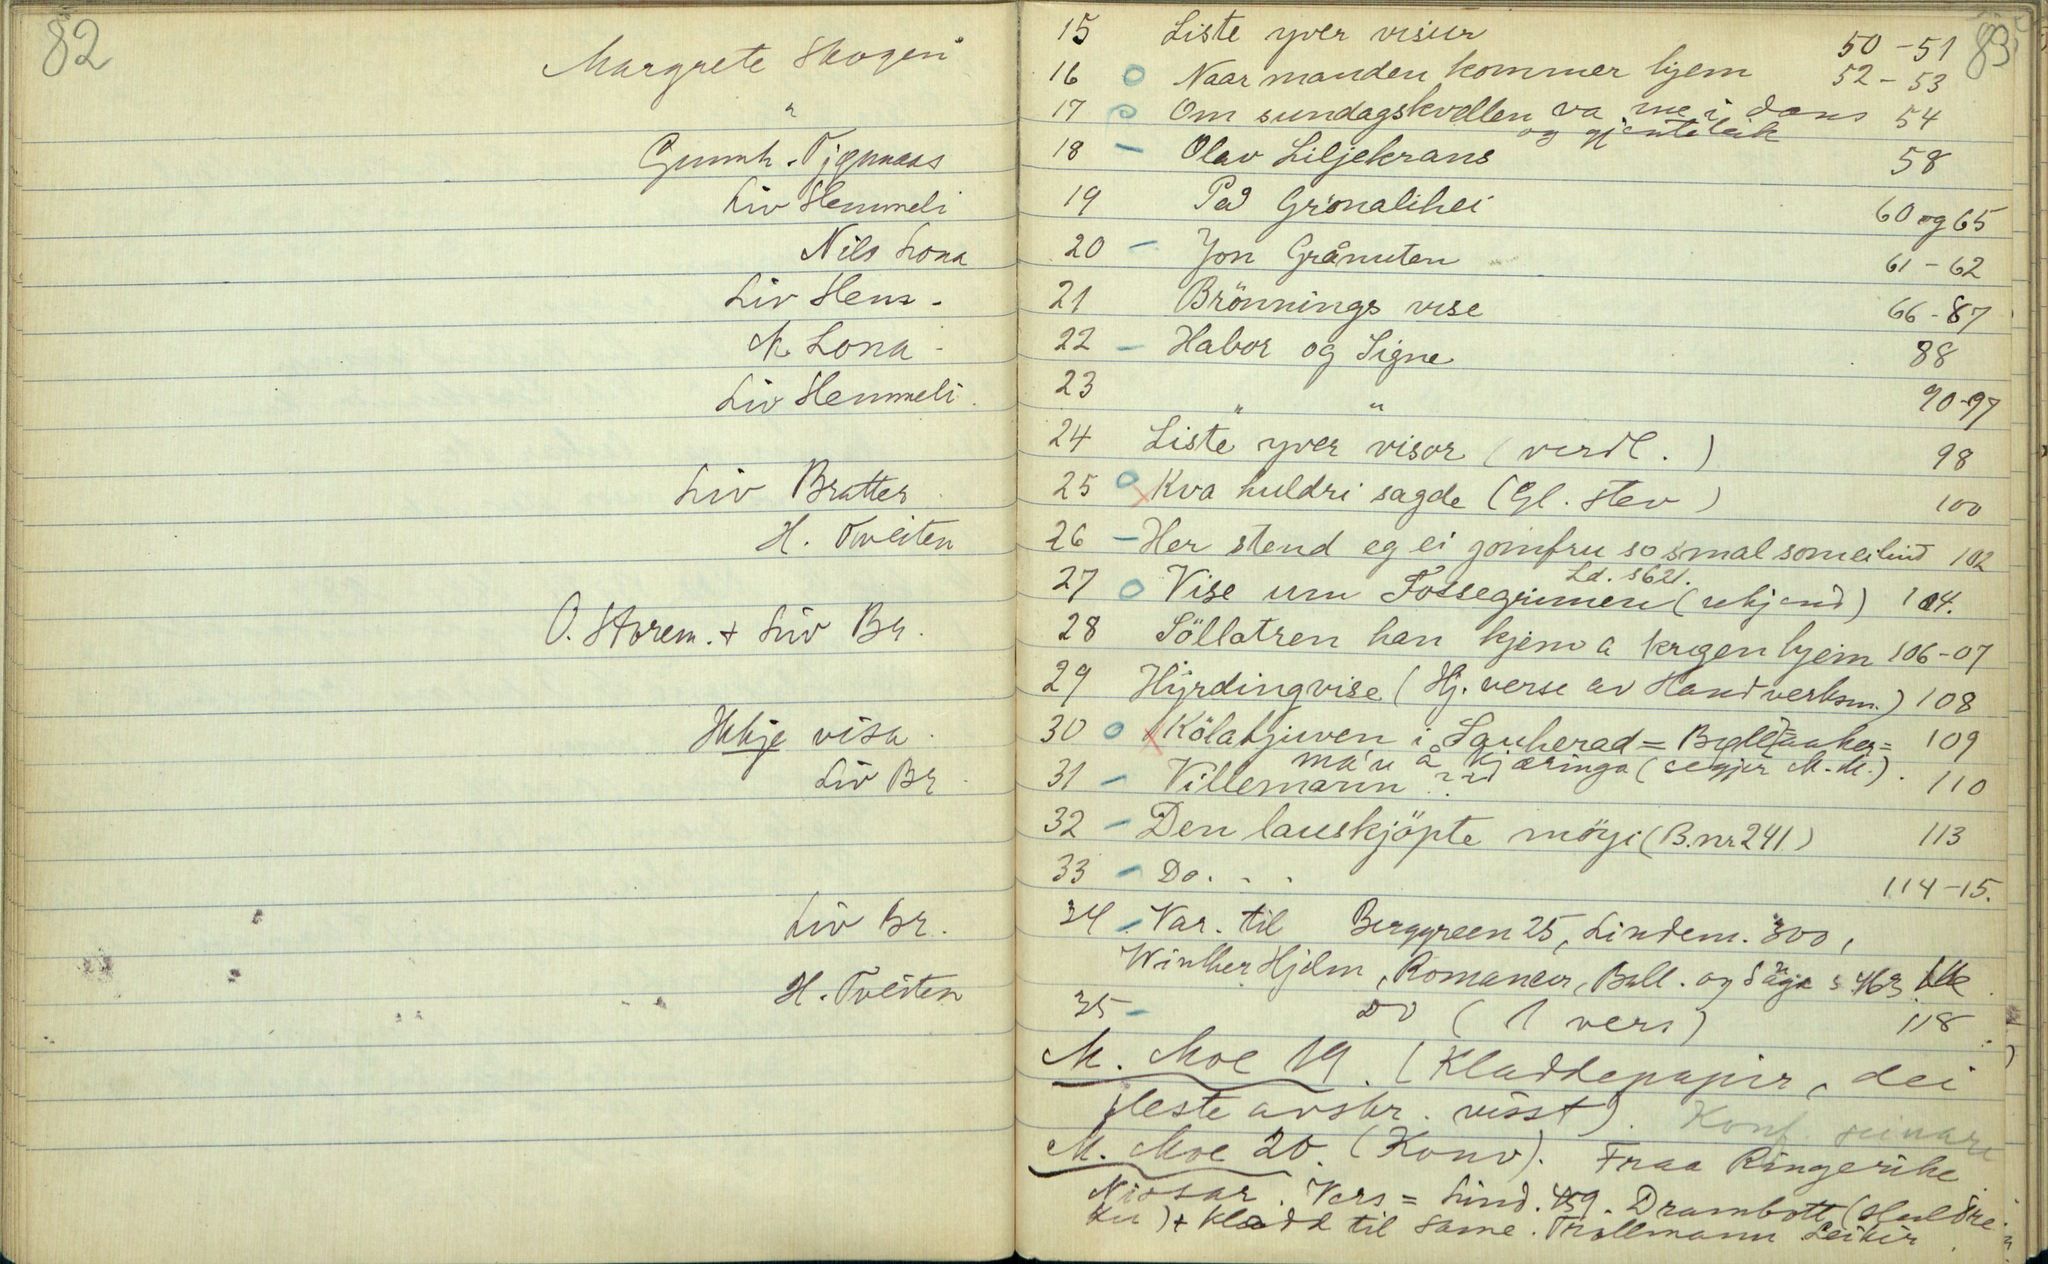 82
Margrete Skogen
"
Gunnh. Tjønnaas
Liv Hemmeli
Nils Lona
Liv Hem.
N. Lona
Liv Hemmeli
Liv Bratter.
H. Tveiten
O. Storem. + Liv Br.
Hikje visa
Liv Br.
Liv Br.
H. Tveiten
83
15 Liste yver visur 50-51
16 o Naar manden kommer hjem 52-53
17 o Om sundagskvellen va me i dans 54
og gjenteleik
18 - Olav Liljekrans 58
19 Paa Grönalihei 60 og 65
20 - Jon Grånuten 61-62
21 Brönnings vise 66-87
22 - Habor og Signe 88
23 " " 90-97
24 Liste yver visor (verdl.) 98
25 o x Kva huldri sagde (Gl. stev) 100
26 - Her stend eg ei jomfru so smal som ei lind 102
Ld. 562.
27 o Vise um Fossegrimen (ukjend) 104.
28 Söllatren han kjem a krigen hjem 106-07
29 Hyrdingvise (Hj. verse av Handverksm.) 108
30 o x Kölabjuven i Sauherad = 109
ma'n å kjæringa (segjer M. M.).
31 - Villemann 110
32 - Den lauskjöpte möyi (B. nr 241) 113
33 - Do. - - 114-15.
34 - Var. til Berggreen 25, Lindem. 300,
Winther Hjelm, Romancer, Ball. og Sagn s 463
35 - Do (1 vers) 118
M. Moe 19. (Kladdepapir, dei
fleste avskr. visst). Konf.
M. Moe 20. (Konv). Fraa Ringerike
Nissar. Vers = Lind. 459. Drambott (Huldre
ku) + Kladd til same. Trollmann Leikir